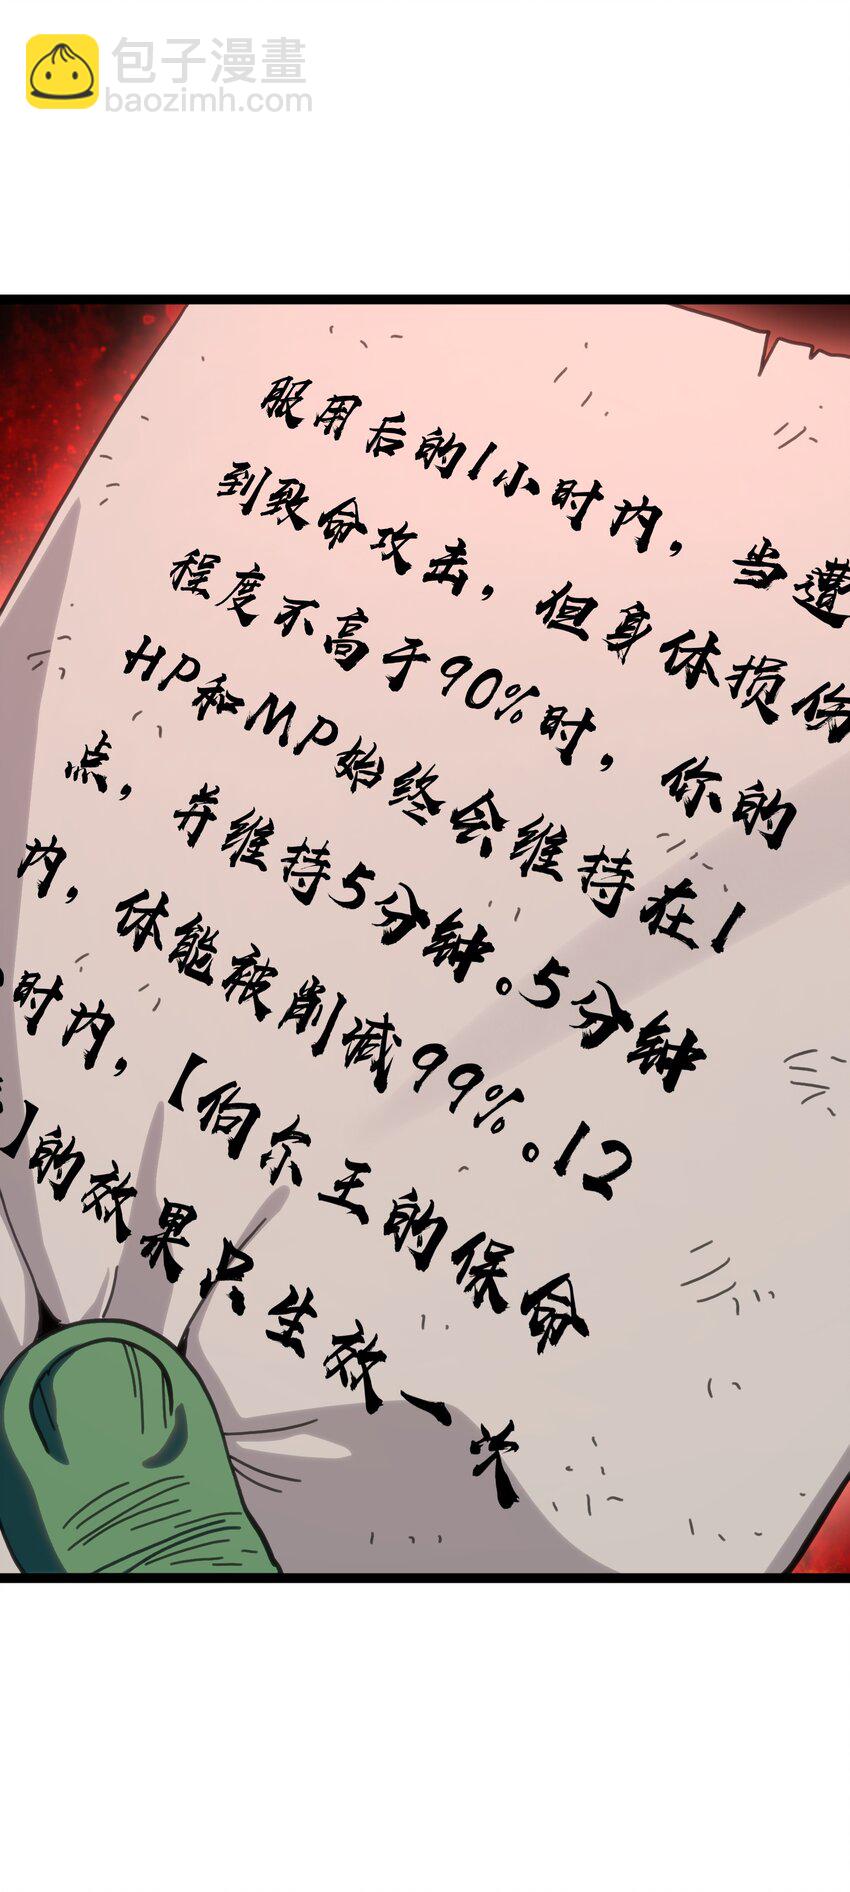 包子漫畫
baozimh.com
服用后的1小时内，当遭
到致命攻击，但身体损伤
程度不高于90%时，你的
HP和MP始终会维持在1
点，并维持5分钟。5分钟
内，体能被削减99%。12
时内，【伯尔王的保命
】的效果只生效一次